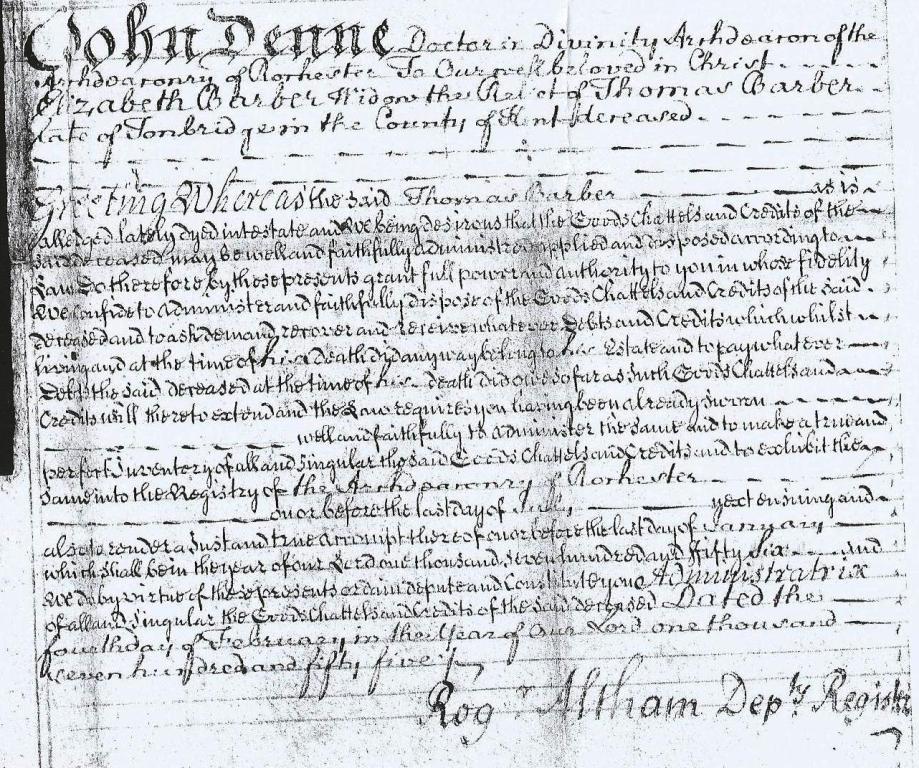 John Denne Doctor in Divinity Archdeacon of the
Archdeaconry of Rochester To Our well beloved in Christ
Elizabeth Barber Widow the Relict of Thomas Barber
late of Tonbridge in the County of Kent deceased
Greeting Whereas the said Thomas Barber as is
alledged lately dyed intestate and We being desirous that the Goods Chattels and Credits of the
said deceased may be well and faithfully administred applied and disposed according to
Law Do therefore by these presents grant full power and authority to you in whose fidelity
We confide to Administer and faithfully dispose of the Goods Chattels and Credits of the said
deceased and to ask demand recover and receive whatever Debts and Credits which whilst
living and at the time of his death did any way belong to his Estate and to pay whatever
Debts the said deceased at the time of his death did owe so far as such Goods Chattels and
Credits will thereto extend and the Law requires you having been already sworn
well and faithfully to Administer the same and to make a true and
perfect Inventory of all and singular the said Goods Chattels and Credits and to exhibit the
same into the Registry of the Archdeaconry of Rochester
on or before the last day of July next ensuing and
also to render a Just and true Accompt thereof on or before the last day of January
which shall be in the year of our Lord one thousand seven hundred and fifty six and
We do by virtue of these presents ordain depute and Constitute you Administratrix
of all and singular the Goods Chattels and Credits of the said deceased Dated the
fourth day of February in the Year of Our Lord one thousand
seven hundred and fifty five
Rogr Altham Depty Registr